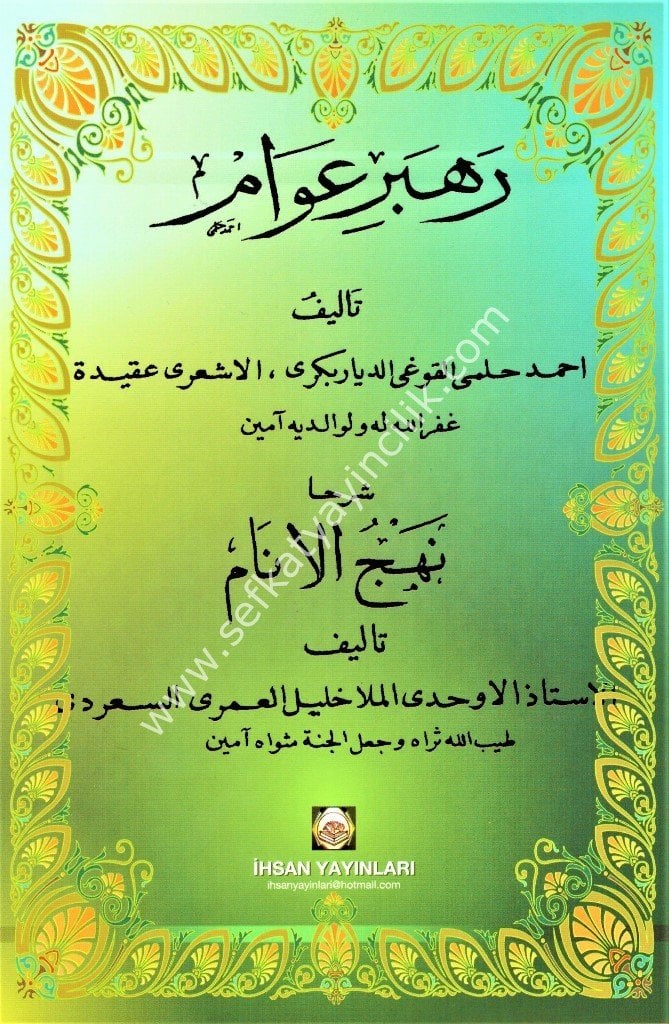 رَهبَرِ عَوَام
احمد حلمى
تَاليفُ
احمد حلمى القوغى الديار بكرى ، الاشعرى عقيدة
غفر الله له ولوالديه آمين
شرحا
نَهَجُ الأنَام
تاليف
الاستاذ الاوحدى الملا خليل العمرى السعردى
طيب الله ثراه وجعل الجنة مثواه آمين
www.sefkatyayincilik.com
İHSAN YAYINLARI
ihsanyayinlari@hotmail.com